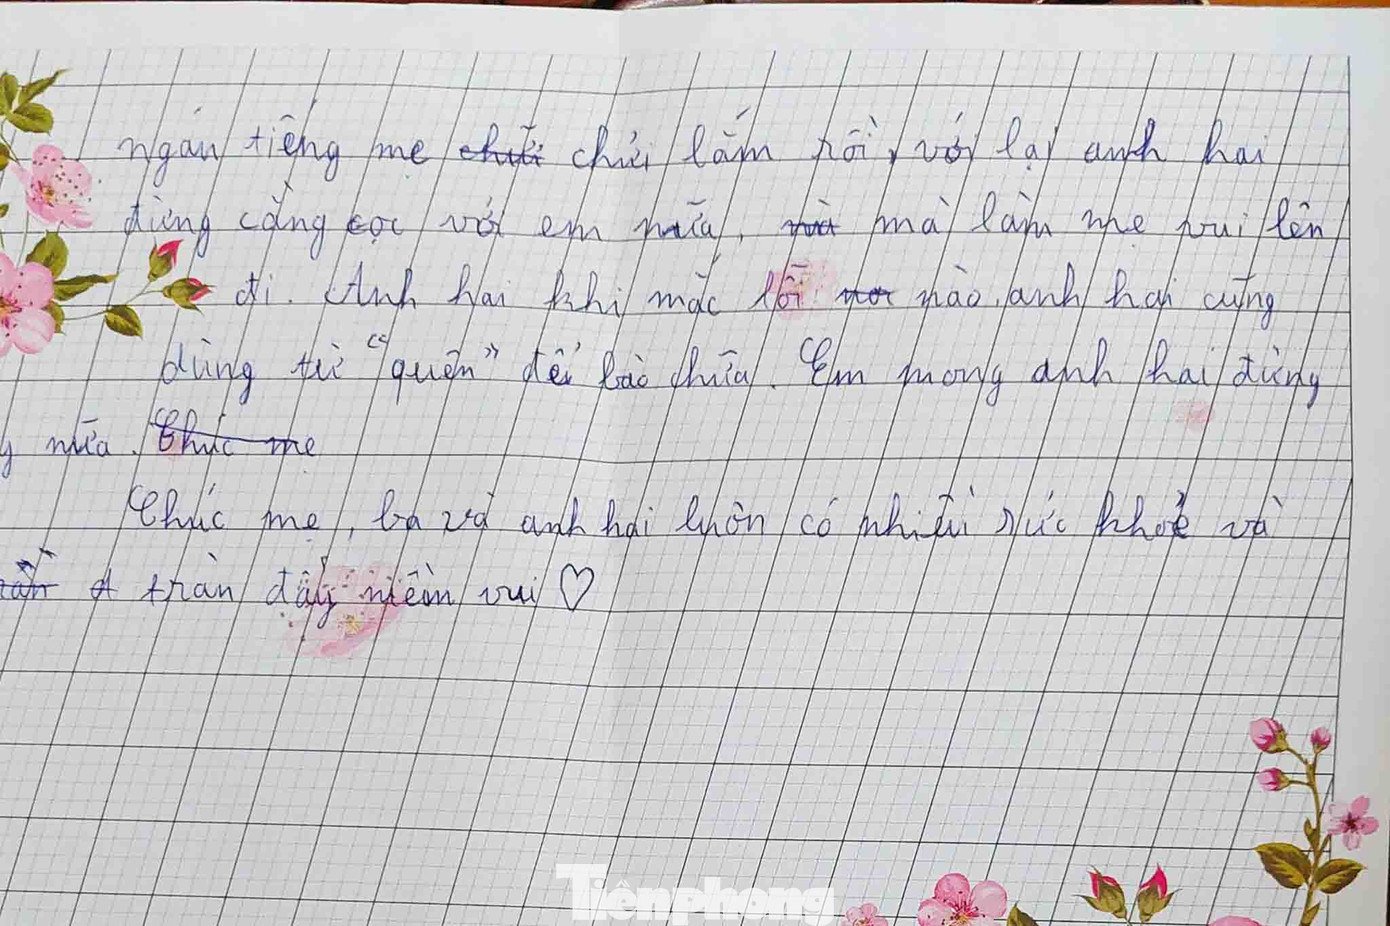 ngán tiếng mẹ chửi chửi lắm rồi, với lại anh hai
đừng cằng cọc với em nữa, mà mà làm mẹ vui lên
đi. Anh hai khi mắc lỗi nào, anh hai cũng
dùng từ "quên" để bào chữa. Em mong anh hai đừng
y nữa. Chúc mẹ
Chúc mẹ, ba và anh hai luôn có nhiều sức khoẻ và
tràn đầy niềm vui ♡
Tiênphong